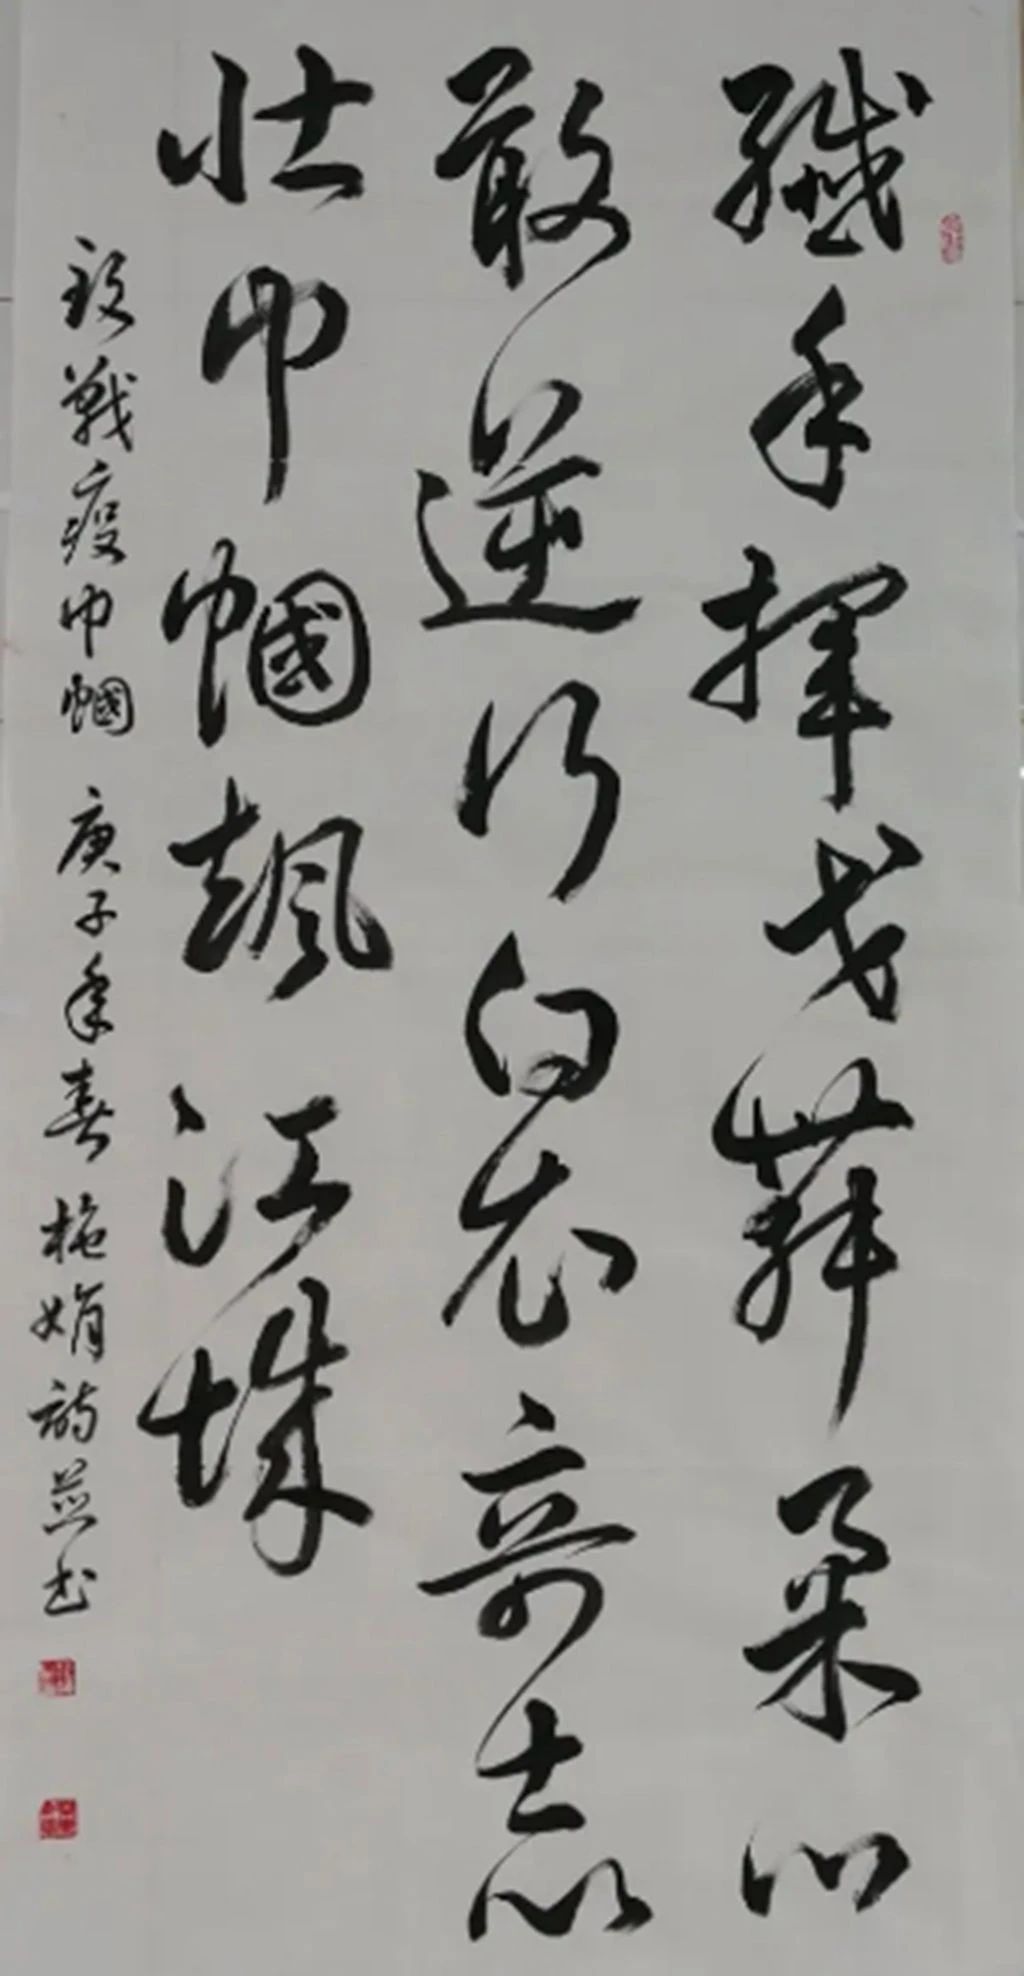 纖手揮戈舞柔心
敢逆行白衣奇志
壯巾幗飒江城
致戰疫巾幗 庚子年春 施娟詩並书